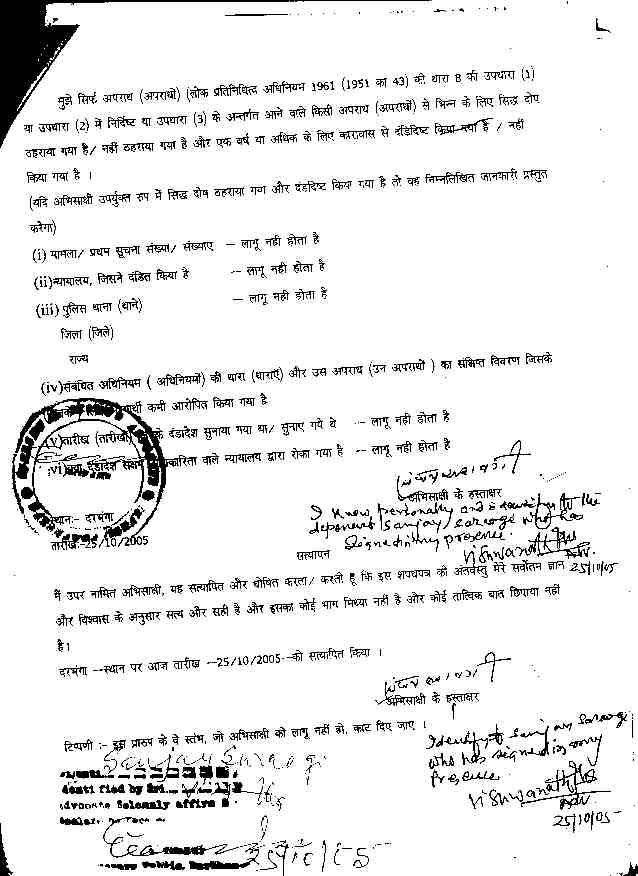 मुझे सिर्फ अपराध (अपराधों) (लोक प्रतिनिधित्व अधिनियम 1961 (1951 का 43) की धारा 8 की उपधारा (1)
या उपधारा (2) में निर्दिष्ट या उपधारा (3) के अन्तर्गत आने वाले किसी अपराध (अपराधों) से भिन्न के लिए सिद्ध दोष
ठहराया गया है/ नहीं ठहराया गया है और एक वर्ष या अधिक के लिए कारावास से दंडिदिष्ट किया गया है / नहीं
किया गया है ।
(यदि अभिसाक्षी उपर्युक्त रुप में सिद्ध दोष ठहराया गया और दंडदिष्ट किया गया है तो वह निम्नलिखित जानकारी प्रस्तुत
करेगा)
(i) मामला/ प्रथम सूचना संख्या/ संख्याए -- लागू नही होता है
(ii) न्यायालय, जिसने दंडित किया है -- लागू नही होता है
(iii) पुलिस थाना (थाने) -- लागू नही होता है
जिला (जिले)
राज्य
(iv) संबंधित अधिनियम ( अधिनियमों) की धारा (धाराएं) और उस अपराध (उन अपराधों ) का संक्षिप्त विवरण जिसके
कभी आरोपित किया गया है
(v) तारीख (तारीखों) के दंडादेश सुनाया गया था/ सुनाए गये थे -- लागू नही होता है
(vi) दंडादेश वाले न्यायालय द्वारा रोका गया है -- लागू नही होता है
अभिसाक्षी के हस्ताक्षर
I know personally and to the
deponent Sanjay Saraogi who has
signed in my presence.
स्थान:- दरभंगा
तारीख:-25/10/2005
सत्यापन
Adv.
25/10/05
मैं उपर नामित अभिसाक्षी, यह सत्यापित और घोषित करता/ करती हूँ कि इस शपथपत्र की अंतर्वस्तु मेरे सर्वोतम ज्ञान
और विश्वास के अनुसार सत्य और सही है और इसका कोई भाग मिथ्या नहीं है और कोई तात्विक बात छिपाया नहीं
है।
दरभंगा --स्थान पर आज तारीख --25/10/2005--को सत्यापित किया ।
अभिसाक्षी के हस्ताक्षर
टिप्पणी :- इस प्रारुप के वे स्तंभ, जो अभिसाक्षी को लागू नहीं हो, काट दिए जाए ।
Sanjay Saraogi
Identify to Sanjay Saraogi
who has signed in my
Presence.
Adv.
25/10/05
identified by Sri.
Advocate Solemnly affirm
25/10/05